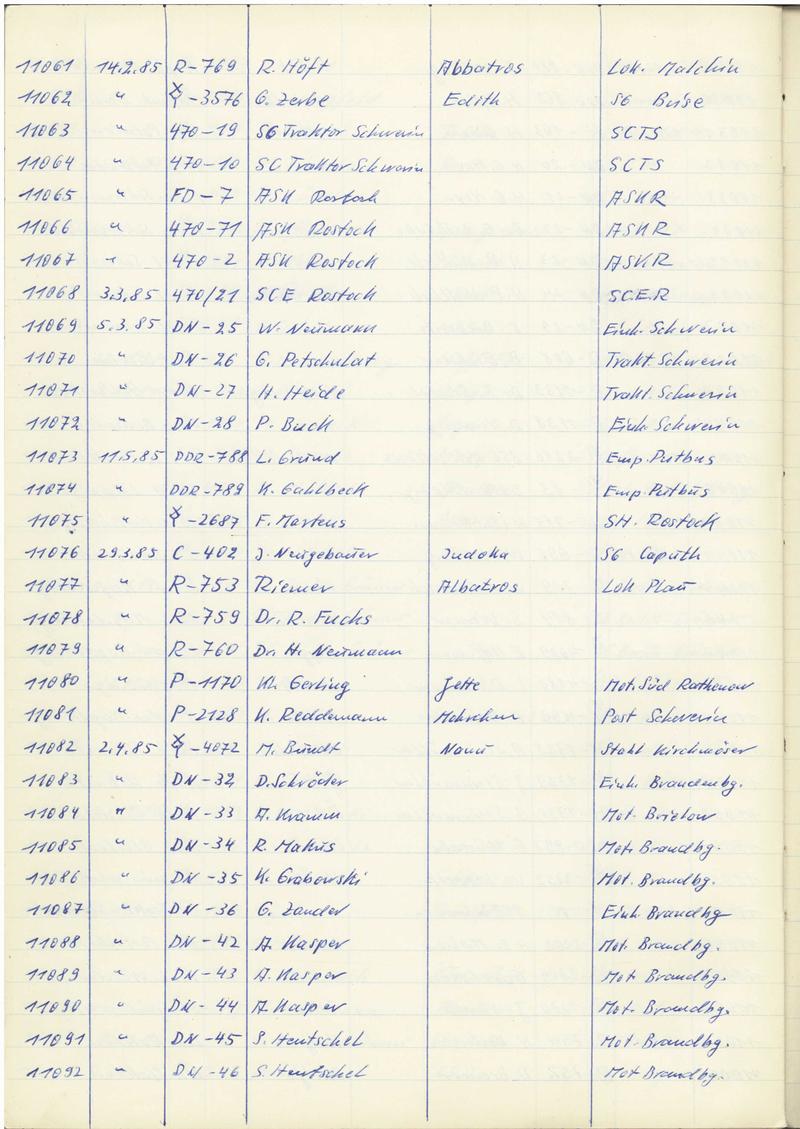 11061 14.2.85 R-769 R. Höft Abbatros Lok. Malchin
11062 " -3576 G. Zerbe Edith SG Buise
11063 " 470-19 SG Traktor Schwerin SCTS
11064 " 470-10 SC Traktor Schwerin SCTS
11065 " FD-7 ASK Rostock ASKR
11066 " 470-71 ASK Rostock ASKR
11067 " 470-2 ASK Rostock ASKR
11068 3.3.85 470/21 SCE Rostock SC.E.R
11069 5.3.85 DN-25 W. Neumann Einh. Schwerin
11070 " DN-26 G. Petschulat Trakt. Schwerin
11071 " DN-27 H. Heide Trakt. Schwerin
11072 " DN-28 P. Buck Einh. Schwerin
11073 11.5.85 DDR-788 L. Grund Emp. Putbus
11074 " DDR-789 K. Gahlbeck Emp. Putbus
11075 " -2687 F. Martens SH. Rostock
11076 29.3.85 C-402 J. Neugebauer Judoka SG Caputh
11077 " R-753 Riemer Albatros Lok Plau
11078 " R-759 Dr. R. Fuchs
11079 " R-760 Dr. H. Neumann
11080 " P-1170 Kl. Gerling Jette Mot. Süd Rathenow
11081 " P-2128 K. Reddemann Mohrchen Post Schwerin
11082 2.4.85 -4072 M. Bundt Nanu Stahl Kirchmöser
11083 " DN-32 D. Schröder Einh. Brandenbg.
11084 " DN-33 A. Kramm Mot. Brielow
11085 " DN-34 R. Makus Mot. Brandbg.
11086 " DN-35 K. Grabowski Mot. Brandbg.
11087 " DN-36 G. Zander Einh. Brandbg
11088 " DN-42 A. Kasper Mot. Brandbg.
11089 " DN-43 A. Kasper Mot Brandbg.
11090 " DN-44 A. Kasper Mot. Brandbg.
11091 " DN-45 S. Hentschel Mot. Brandbg.
11092 " DN-46 S. Hentschel Mot Brandbg.